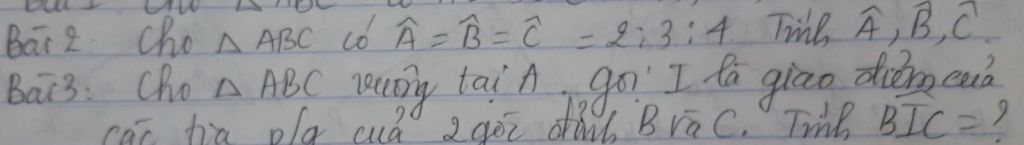 Cho △ ABC có
Bài 2: Cho △ ABC có Â = B̂ = Ĉ = 2:3:4. Tính Â, B̂, Ĉ.
Bài 3: Cho △ ABC vuông tại A. gọi I là giao điểm của
các tia p/g của 2 góc đỉnh B và C. Tính BÎC = ?